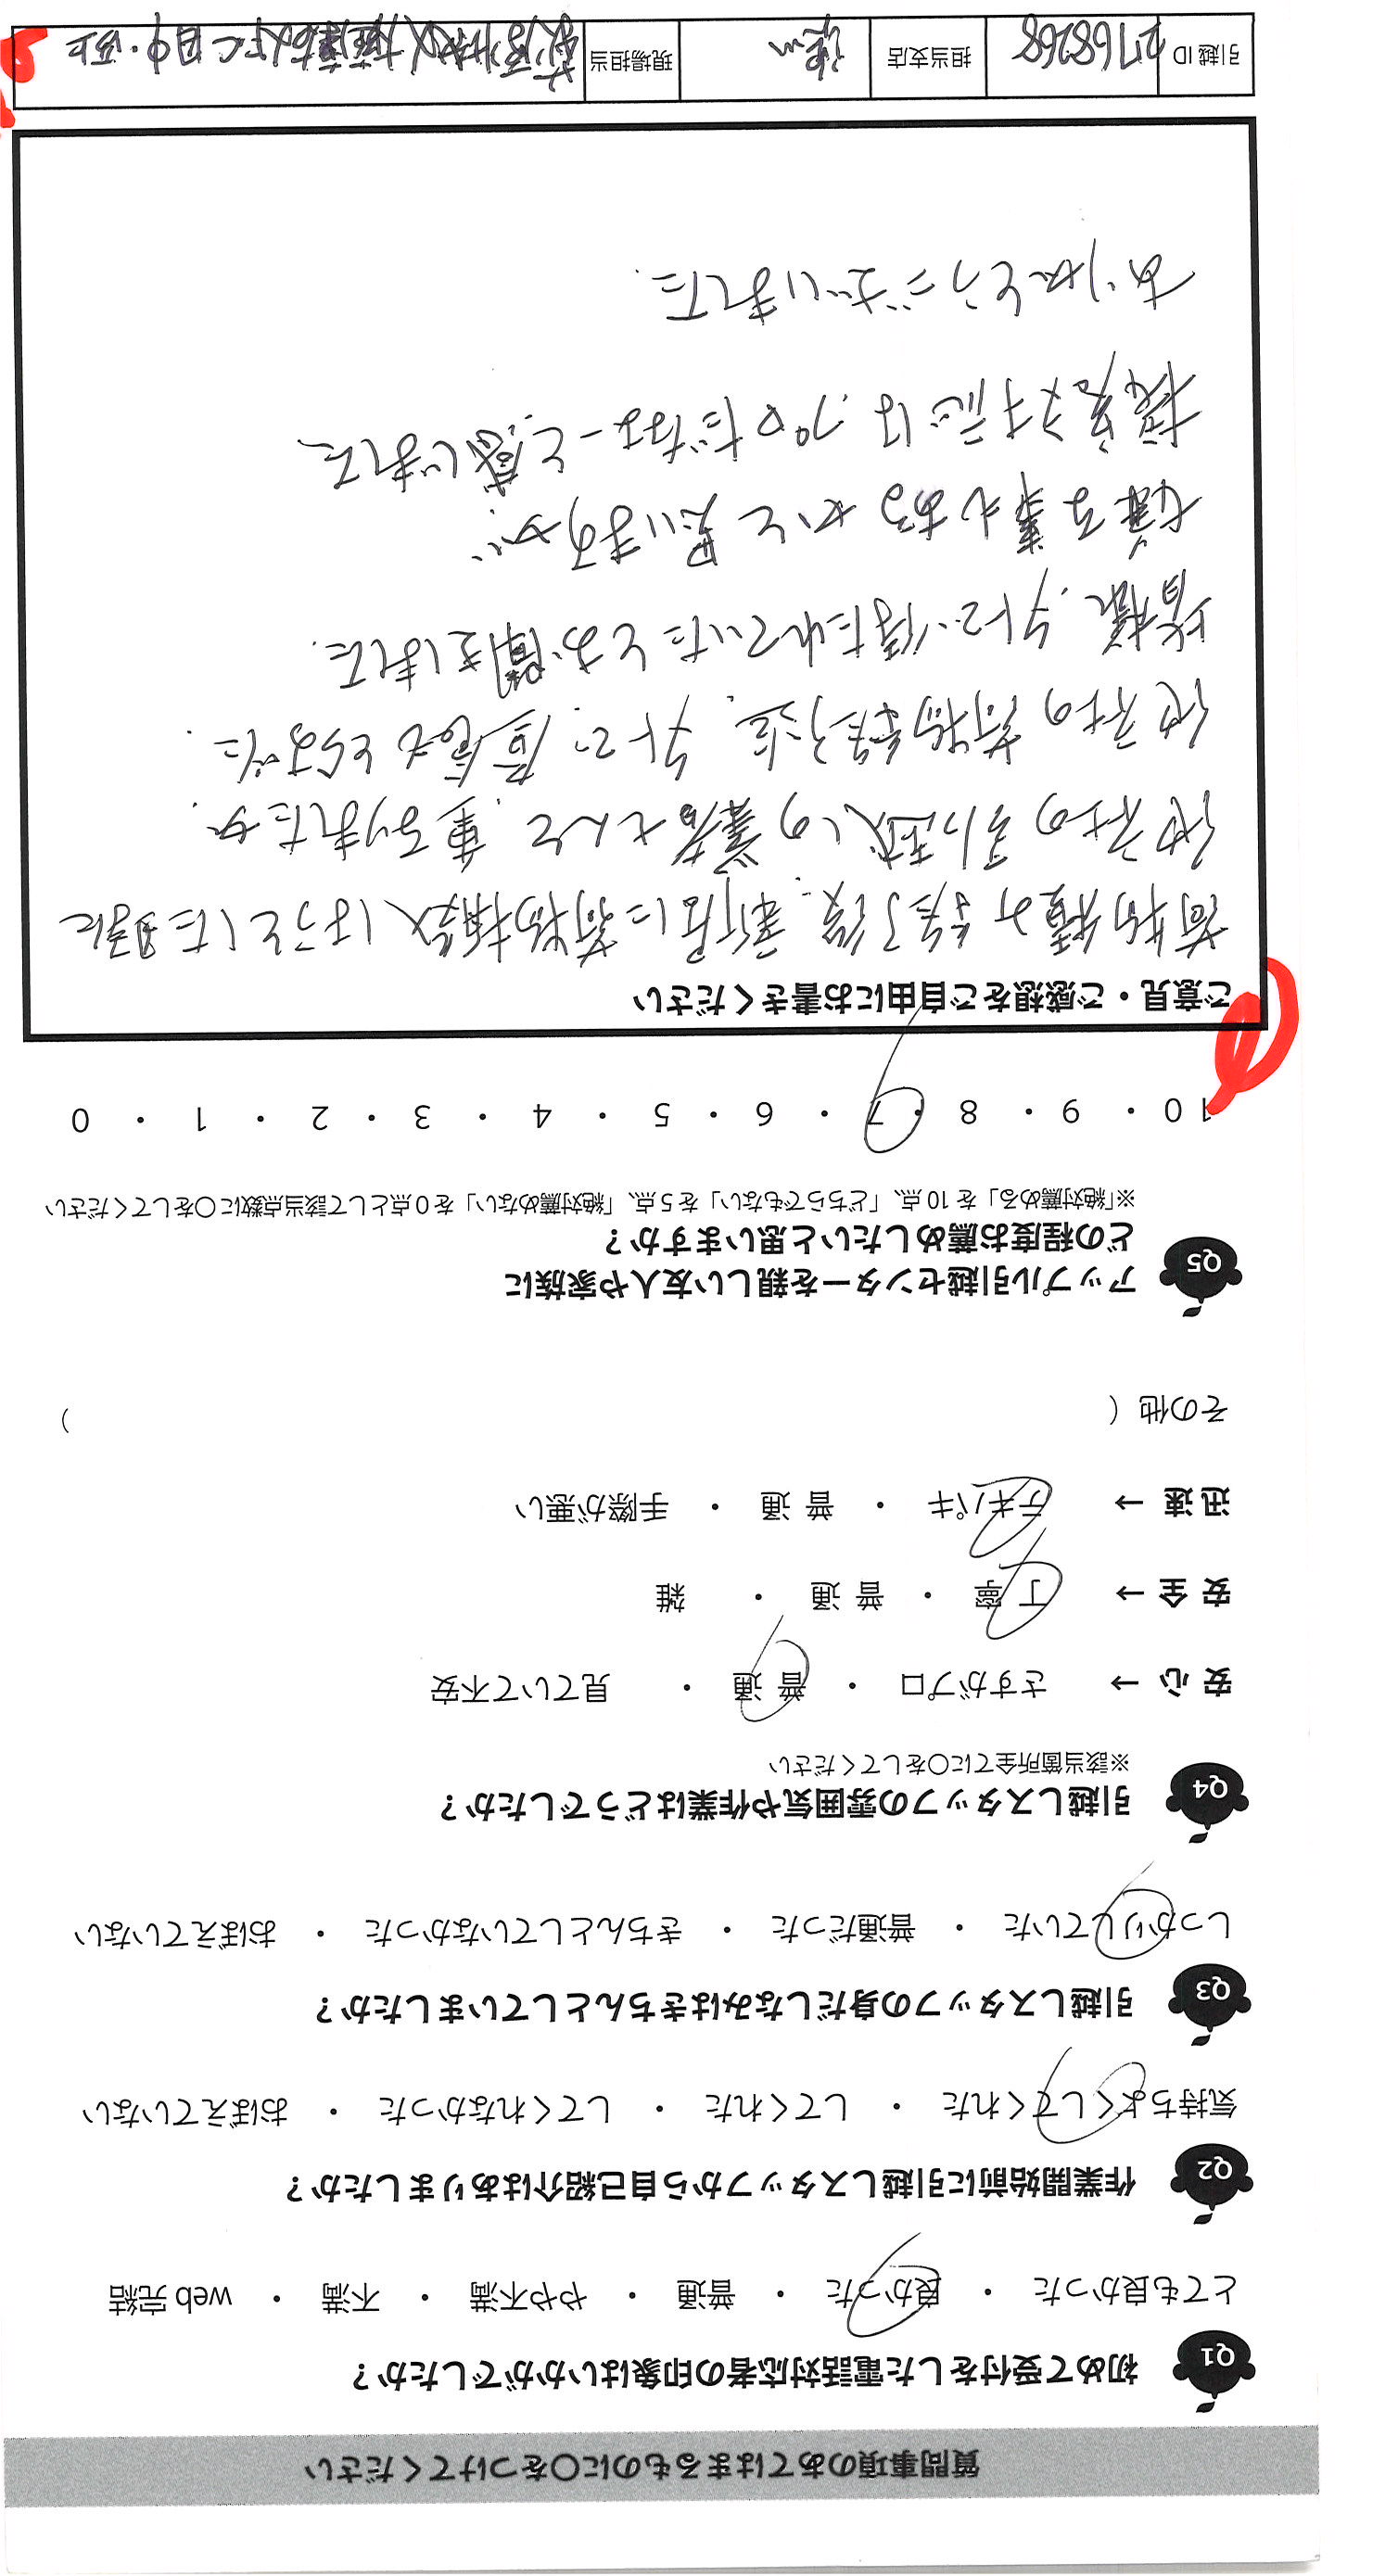 質問事項のあてはまるものに○をつけてください
Q1 初めて受付をした電話対応者の印象はいかがでしたか？
とても良かった ・ 良かった ・ 普通 ・ やや不満 ・ 不満 ・ web完結
Q2 作業開始前に引越しスタッフから自己紹介はありましたか？
気持ちよくしてくれた ・ してくれた ・ してくれなかった ・ おぼえていない
Q3 引越しスタッフの身だしなみはきちんとしていましたか？
しっかりしていた ・ 普通だった ・ きちんとしていなかった ・ おぼえていない
Q4 引越しスタッフの雰囲気や作業はどうでしたか？
※該当箇所全てに○をしてください
安心 → さすがプロ ・ 普通 ・ 見ていて不安
安全 → 丁寧 ・ 普通 ・ 雑
迅速 → テキパキ ・ 普通 ・ 手際が悪い
その他（ ）
Q5 アップル引越センターを親しい友人や家族に
どの程度お薦めしたいと思いますか？
※「絶対薦める」を10点、「どちらでもない」を5点、「絶対薦めない」を0点として該当点数に○をしてください
10 ・ 9 ・ 8 ・ 7 ・ 6 ・ 5 ・ 4 ・ 3 ・ 2 ・ 1 ・ 0
ご意見・ご感想をご自由にお書きください
荷物積み終了後、新居に荷物搬入しようとした時に
他社の引越しの業者さんと、重なりましたが、
他社の荷物終了迄、外で、昼食もとらずに
皆様、外で待たれていたとお聞きしました。
嫌な事もあるかと思いますが、
接客対応はプロだなーと感じました
ありがとうございました。
引越ID 2768268 担当支店 現場担当